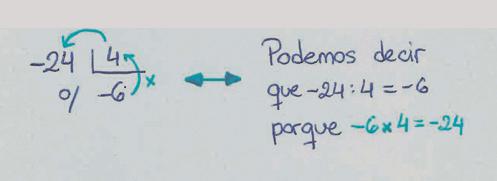 -24 | 4
0/ -6 x
Podemos decir
que -24:4 = -6
porque -6x4=-24